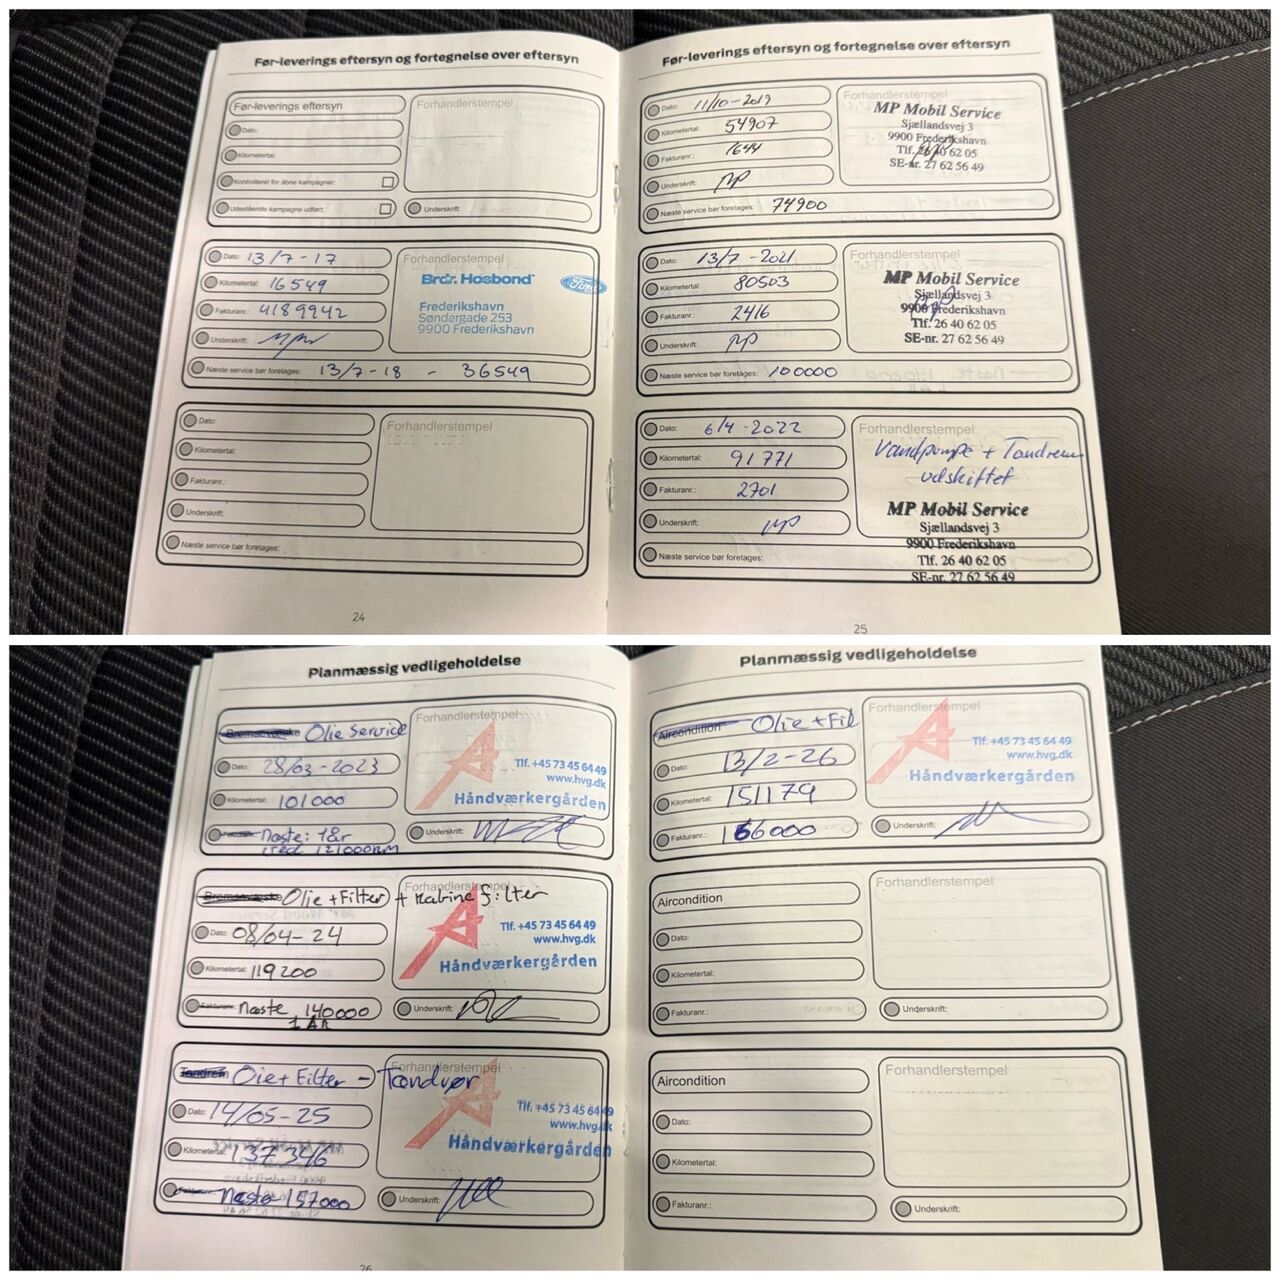 Før-leverings eftersyn og fortegnelse over eftersyn
Før-leverings eftersyn
Forhandlerstempel
Dato:
Kilometertal:
Kontrolleret for åbne kampagner:
Udestående kampagne udført:
Underskrift:
Dato: 13/7-17
Forhandlerstempel
Kilometertal: 16549
Brdr. Hosbond
Ford
Fakturanr.: 4189942
Frederikshavn
Søndergade 253
9900 Frederikshavn
Underskrift:
Næste service bør foretages: 13/7-18 - 36549
Dato:
Forhandlerstempel
Kilometertal:
Fakturanr.:
Underskrift:
Næste service bør foretages:
24
Før-leverings eftersyn og fortegnelse over eftersyn
Dato: 11/10-2019
Forhandlerstempel
Kilometertal: 54907
MP Mobil Service
Sjællandsvej 3
Fakturanr.: 1644
9900 Frederikshavn
Tlf. 26 40 62 05
Underskrift: MP
SE-nr. 27 62 56 49
Næste service bør foretages: 74900
Dato: 13/7-2021
Forhandlerstempel
Kilometertal: 80503
MP Mobil Service
Sjællandsvej 3
Fakturanr.: 2416
9900 Frederikshavn
Tlf. 26 40 62 05
Underskrift: MP
SE-nr. 27 62 56 49
Næste service bør foretages: 100000
Dato: 6/4-2022
Forhandlerstempel
Kilometertal: 91771
Vandpumpe + Tandrem
udskiftet
Fakturanr.: 2701
MP Mobil Service
Underskrift: MP
Sjællandsvej 3
9900 Frederikshavn
Næste service bør foretages:
Tlf. 26 40 62 05
SE-nr. 27 62 56 49
25
Planmæssig vedligeholdelse
Bremsevæske Olie Service
Forhandlerstempel
Dato: 28/03-2023
Tlf. +45 73 45 64 49
www.hvg.dk
Kilometertal: 101000
Håndværkergården
Næste: 1år
ved 121000km
Underskrift:
Bremsevæske Olie + Filter + Kabine filter
Forhandlerstempel
Dato: 08/04-24
Tlf. +45 73 45 64 49
www.hvg.dk
Kilometertal: 119200
Håndværkergården
Fakturanr.: Næste 140000
1 ÅR
Underskrift:
Tandrem Oie + Filter - Tændrør
Forhandlerstempel
Dato: 14/05-25
Tlf. +45 73 45 64 49
www.hvg.dk
Kilometertal: 137346
Håndværkergården
Næste 157000
Underskrift:
26
Planmæssig vedligeholdelse
Aircondition Olie + Fil
Forhandlerstempel
Dato: 13/2-26
Tlf. +45 73 45 64 49
www.hvg.dk
Kilometertal: 151179
Håndværkergården
Fakturanr.: 166000
Underskrift:
Aircondition
Forhandlerstempel
Dato:
Kilometertal:
Fakturanr.:
Underskrift:
Aircondition
Forhandlerstempel
Dato:
Kilometertal:
Fakturanr.:
Underskrift: